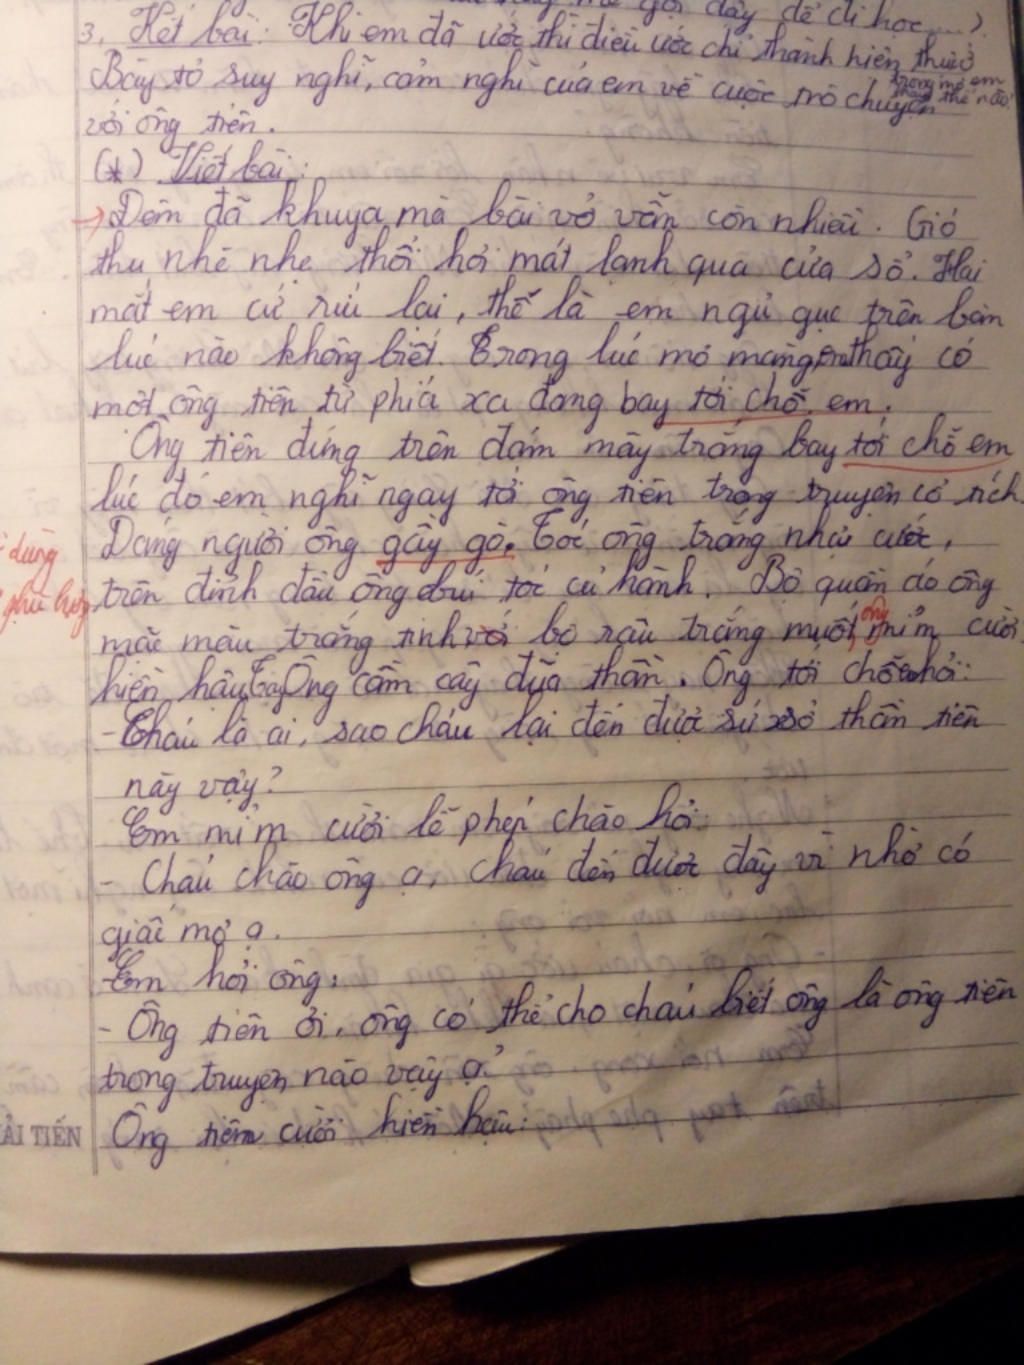 gọi dậy để đi học...).
3. Kết bài: Khi em đã ước thì điều ước chỉ thành hiện thực ở
trong mơ em
Bày tỏ suy nghĩ, cảm nghĩ của em về cuộc trò chuyện thế nào?
với ông tiên.
(*) Viết bài:
→ Đêm đã khuya mà bài vở vẫn còn nhiều. Gió
thu nhè nhẹ thổi hơi mát lạnh qua cửa sổ. Hai
mắt em cứ ríu lại, thế là em ngủ gục trên bàn
lúc nào không biết. Trong lúc mơ màng, em thấy có
một ông tiên từ phía xa đang bay tới chỗ em.
Ông tiên đứng trên đám mây trắng bay tới chỗ em
lúc đó em nghĩ ngay tới ông tiên trong truyện cổ tích.
Dáng người ông gầy gò. Tóc ông trắng như cước,
dùng
trên đỉnh đầu ông búi tóc củ hành. Bộ quần áo ông
phù hợp
mặc màu trắng tinh với bộ râu trắng muốt, ông mỉm cười
hiền hậu. Tay Ông cầm cây đũa thần. Ông tới chỗ em hỏi:
- Cháu là ai, sao cháu lại đến được sứ xở thần tiên
này vậy?
Em mỉm cười lễ phép chào hỏi:
- Cháu chào ông ạ, cháu đến được đây vì nhờ có
giấc mơ ạ.
Em hỏi ông:
- Ông tiên ơi, ông có thể cho cháu biết ông là ông tiên
trong truyện nào vậy ạ?
Ông tiên cười hiền hậu:
ẢI TIẾN